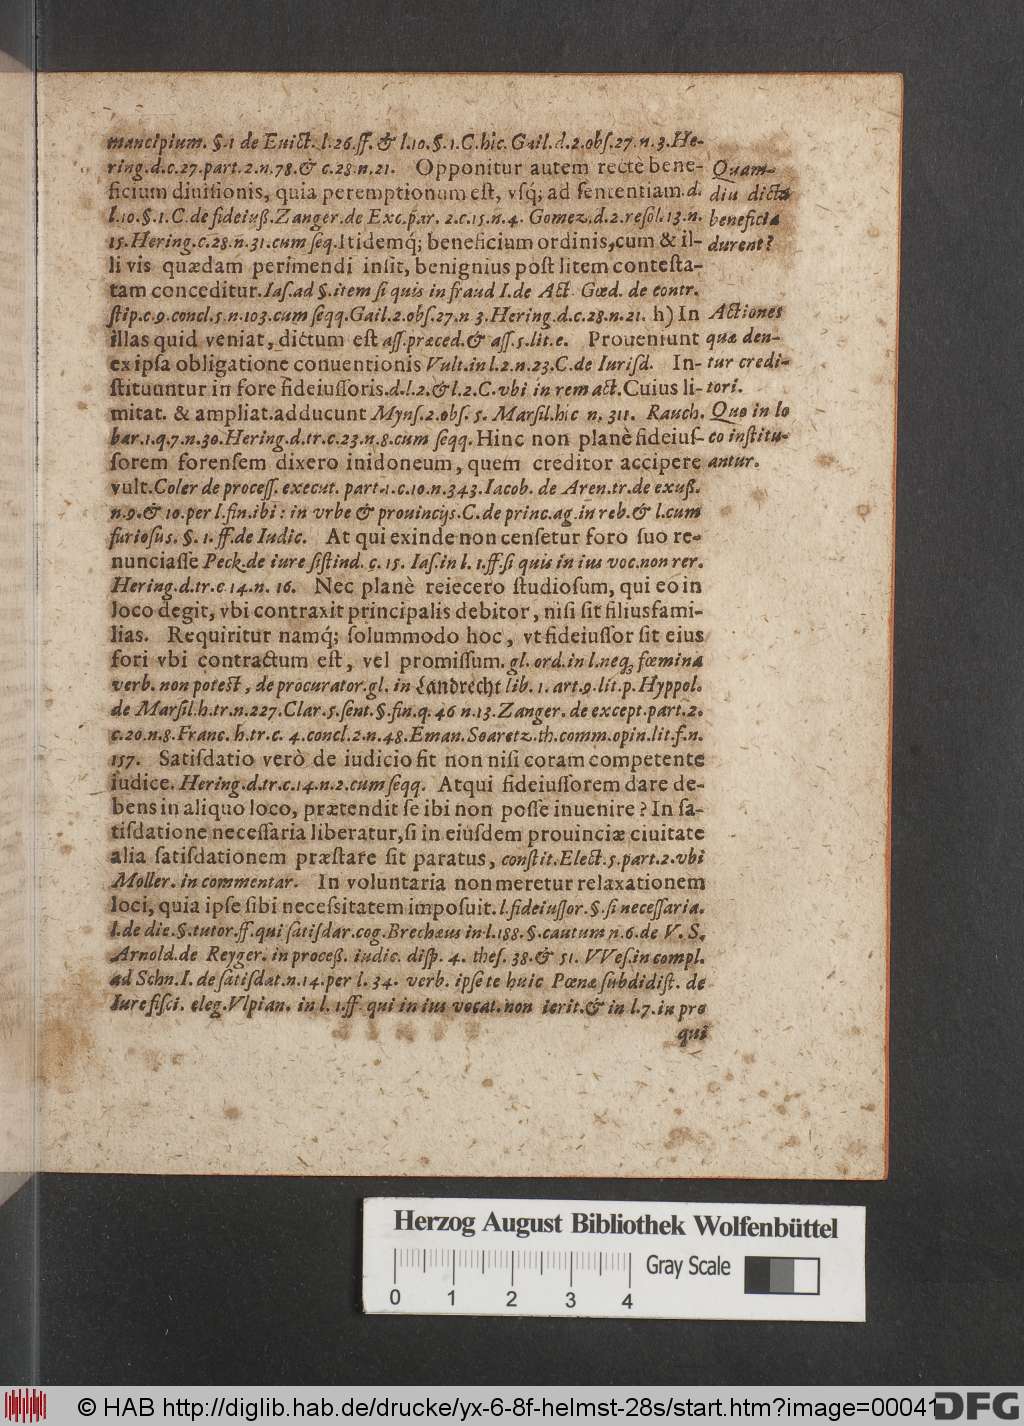 mancipium. §.1 de Euict. l.26.ff. & l.10.§.1.C.hic. Gail.d.2.obſ.27.n.3.He-
ring.d.c.27.part.2.n.78.& c.28.n.21. Opponitur autem rectè bene-
ficium diuiſionis, quia peremptionum eſt, vſq́; ad ſententiam.d.
l.10.§.1.C.de fideiuß.Zanger.de Exc.par. 2.c.15.n.4. Gomez.d.2.reſol.13.n.
15.Hering.c.28.n.31.cum ſeq.Itidemq́; beneficium ordinis,cum & il-
li vis quædam perimendi inſit, benignius poſt litem conteſta-
tam conceditur.Iaſ.ad §.item ſi quis in fraud I.de Act. Gœd. de contr.
ſtip.c.9.concl.5.n.103.cum ſeqq.Gail.2.obſ.27.n 3.Hering.d.c.28.n.21. h) In
illas quid veniat, dictum eſt aſſ.præced.& aſſ.5.lit.e. Proueniunt
ex ipſa obligatione conuentionis Vult.in l.2.n.23.C.de Iuriſd. In-
ſtituuntur in foro fideiuſſoris.d.l.2.& l.2.C.vbi in rem act.Cuius li-
mitat. & ampliat.adducunt Mynſ.2.obſ. 5. Marſil.hic n. 311. Rauch.
bar.1.q.7.n.30.Hering.d.tr.c.23.n.8.cum ſeqq.Hinc non planè fideiuſ-
ſorem forenſem dixero inidoneum, quem creditor accipere
vult.Coler de proceſſ. execut. part.1.c.10.n.343.Iacob. de Aren.tr.de exuß.
n.9.& 10.per l.fin.ibi: in vrbe & prouincijs.C.de princ.ag.in reb.& l.cum
furioſus. §. 1.ff.de Iudic. At qui exinde non cenſetur foro ſuo re-
nunciaſſe Peck.de iure ſiſtind. c. 15. Iaſ.in l. 1.ff.ſi quis in ius voc.non rer.
Hering.d.tr.c 14.n. 16. Nec planè reiecero ſtudioſum, qui eo in
loco degit, vbi contraxit principalis debitor, niſi ſit filiusfami-
lias. Requiritur namq́; ſolummodo hoc, vt fideiuſſor ſit eius
fori vbi contractum eſt, vel promiſſum. gl. ord.in l.neq; fœmina
verb. non poteſt, de procurator.gl. in Landrecht lib. 1. art.9.lit.p.Hyppol.
de Marſil.h.tr.n.227.Clar.5.ſent.§.fin.q. 46 n.13.Zanger. de except.part.2.
c.20.n.8.Franc. h.tr.c. 4.concl.2.n.48.Eman.Soaretz.th.comm.opin.lit.f.n.
157. Satiſdatio verò de iudicio fit non niſi coram competente
iudice. Hering.d.tr.c.14.n.2.cum ſeqq. Atqui fideiuſſorem dare de-
bens in aliquo loco, prætendit ſe ibi non poſſe inuenire? In ſa-
tiſdatione neceſſaria liberatur,ſi in eiuſdem prouinciæ ciuitate
alia ſatiſdationem præſtare ſit paratus, conſtit.Elect.5.part.2.vbi
Moller. in commentar. In voluntaria non meretur relaxationem
loci, quia ipſe ſibi neceſsitatem impoſuit.l.fideiuſſor.§.ſi neceſſaria.
l.de die.§.tutor.ff.qui ſatiſdar.cog.Brechæus in l.188.§.cautum n.6.de V. S.
Arnold.de Reyger. in proceß. iudic. diſp. 4. theſ. 38.& 51. VVeſ.in compl.
ad Schn.I.de ſatiſdat.n.14.per l. 34. verb. ipſe te huic Pœnæ ſubdidiſt. de
Iure fiſci. eleg.Vlpian. in l. 1.ff. qui in ius vocat.non ierit.& in l.7.in pro
qui
Quam-
diu dicta
beneficia
durent?
Actiones
quæ den-
tur credi-
tori.
Quo in lo
co inſtitu-
antur.
Herzog August Bibliothek Wolfenbüttel
Gray Scale
0 1 2 3 4
© HAB http://diglib.hab.de/drucke/yx-6-8f-helmst-28s/start.htm?image=00041
DFG